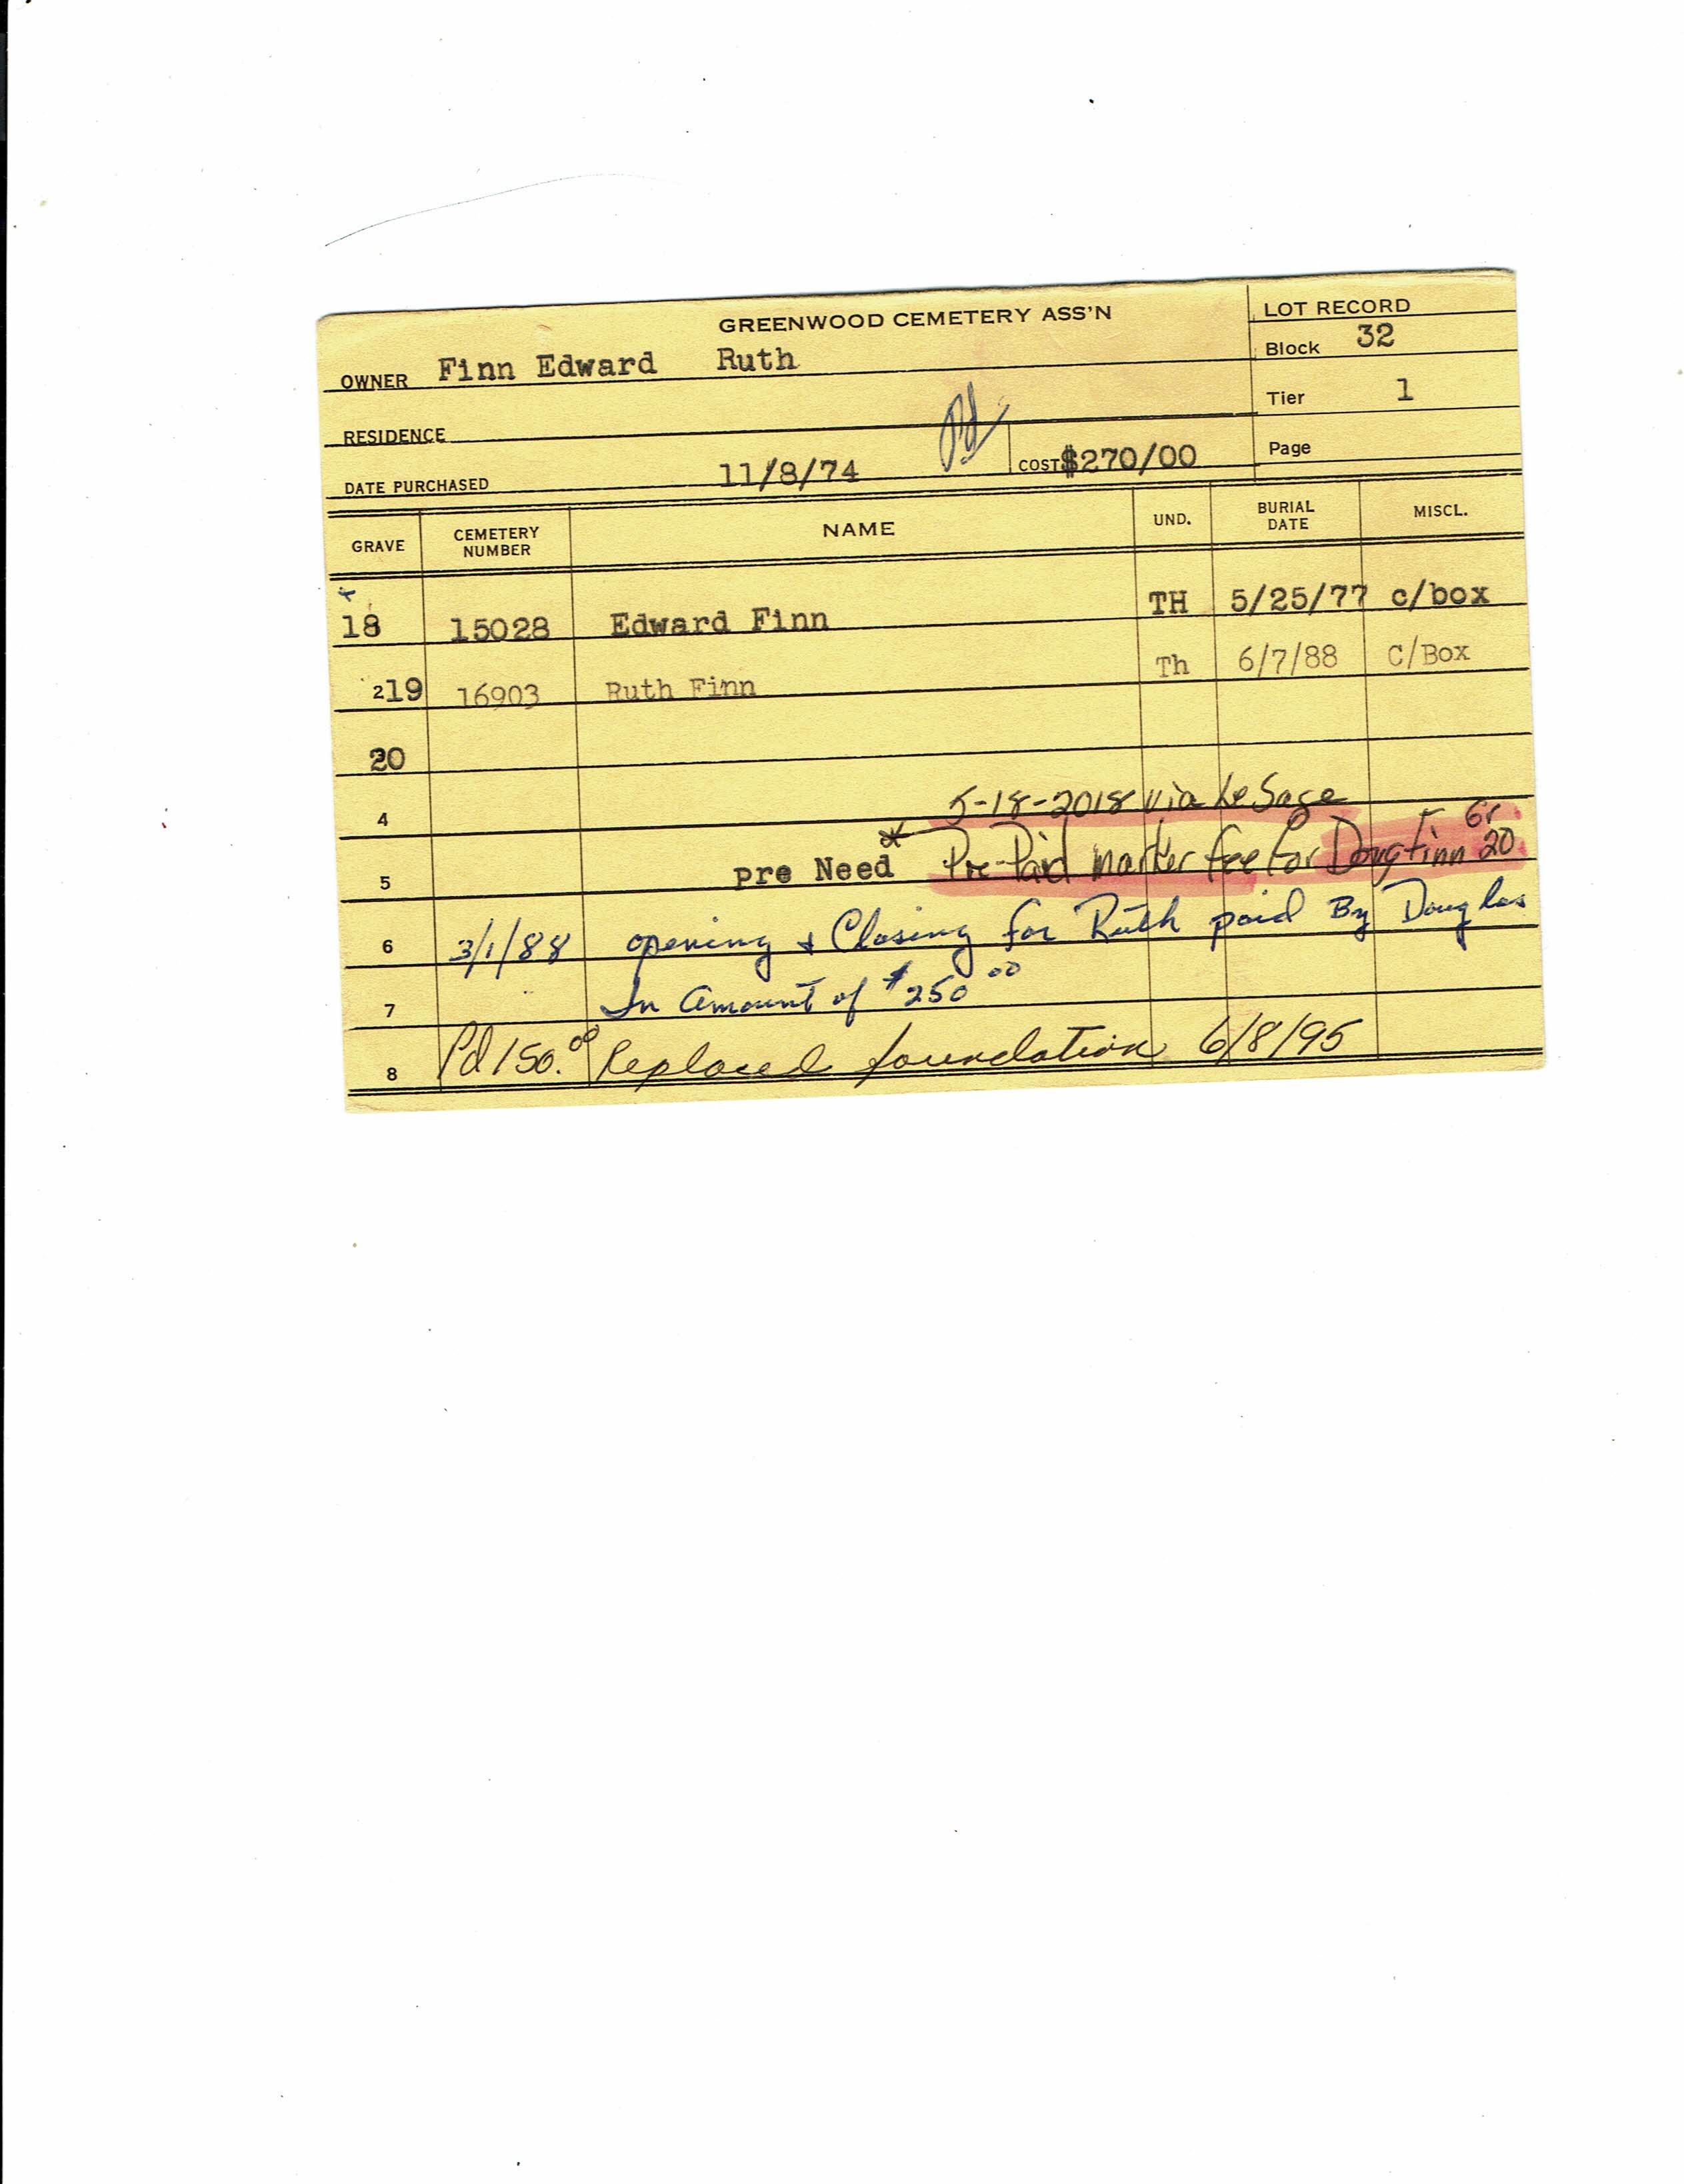 GREENWOOD CEMETERY ASS'N
LOT RECORD
OWNER Finn Edward Ruth
Block 32
RESIDENCE
Tier 1
DATE PURCHASED 11/8/74 Pd COST $270/00
Page
GRAVE CEMETERY NUMBER NAME UND. BURIAL DATE MISCL.
18 15028 Edward Finn TH 5/25/77 c/box
219 16903 Ruth Finn Th 6/7/88 C/Box
20
4 5-18-2018 via LeSage
5 pre Need * Pre-Paid marker fee for Doug Finn Gr 20
6 3/1/88 opening & Closing for Ruth paid By Douglas
7 In Amount of $250 00
8 Pd 150.00 Replaced foundation 6/8/95